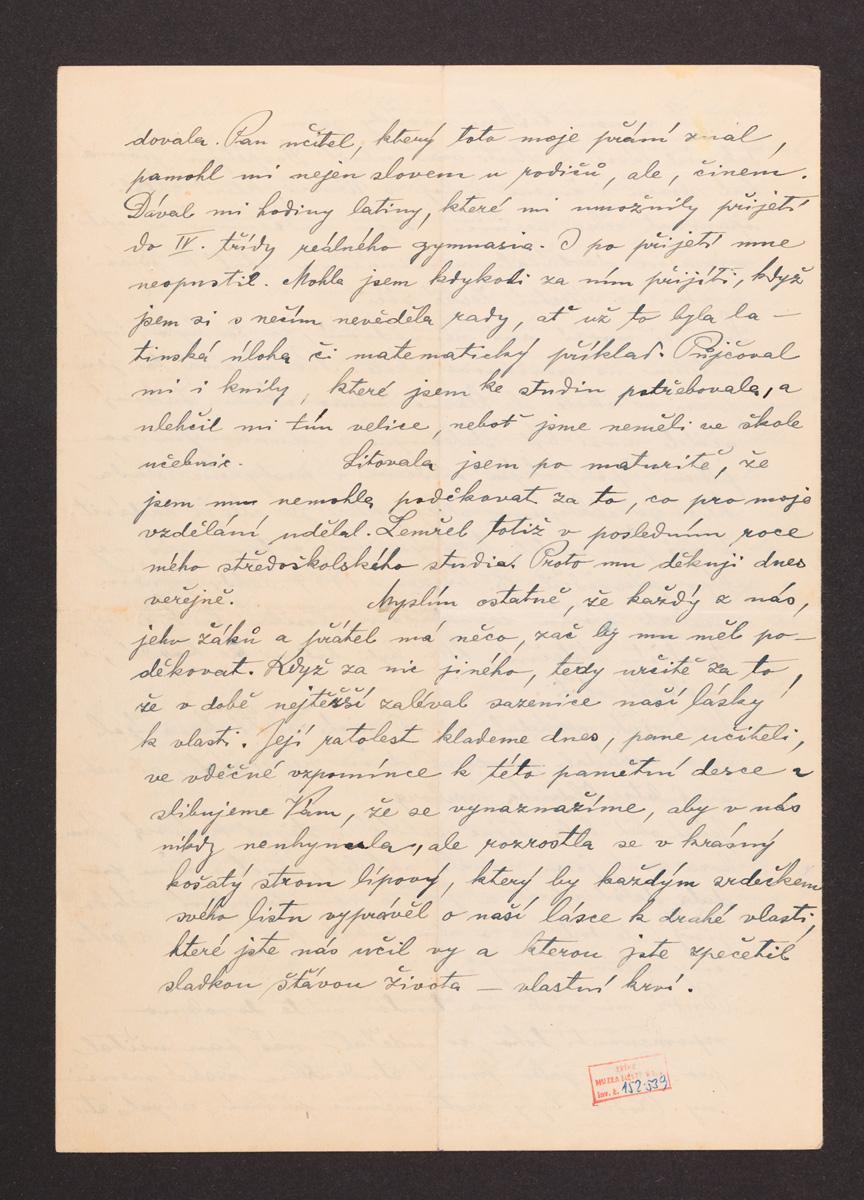 dovala. Pan učitel, který toto moje přání znal,
pomohl mi nejen slovem u rodičů, ale, činem.
Dával mi hodiny latiny, které mi umožnily přijetí
do IV. třídy reálného gymnasia. I po přijetí mne
neopustil. Mohla jsem kdykoli za ním přijíti, když
jsem si s nečím nevěděla rady, ať už to byla la-
tinská úloha či matematický příklad. Půjčoval
mi i knihy, které jsem ke studiu potřebovala, a
ulehčil mi tím velice, neboť jsme neměli ve škole
učebnic. Litovala jsem po maturitě, že
jsem mu nemohla poděkovat za to, co pro moje
vzdělání udělal. Zemřel totiž v posledním roce
mého středoškolského studia. Proto mu děkuji dnes
veřejně. Myslím ostatně, že každý z nás,
jeho žáků a přátel má něco, zač by mu měl po-
děkovat. Když za nic jiného, tedy určitě za to,
že v době nejtěžší zaléval sazenice naší lásky
k vlasti. Její ratolest klademe dnes, pane učiteli,
ve vděčné vzpomínce k této pamětní desce a
slibujeme Vám, že se vynasnažíme, aby v nás
nikdy neuhynula, ale rozrostla se v krásný
košatý strom lípový, který by každým srdéčkem
svého listu vyprávěl o naší lásce k drahé vlasti,
které jste nás učil vy a kterou jste zpečetil
sladkou šťávou života – vlastní krví.
MUZEA
Inv. č. 152.539